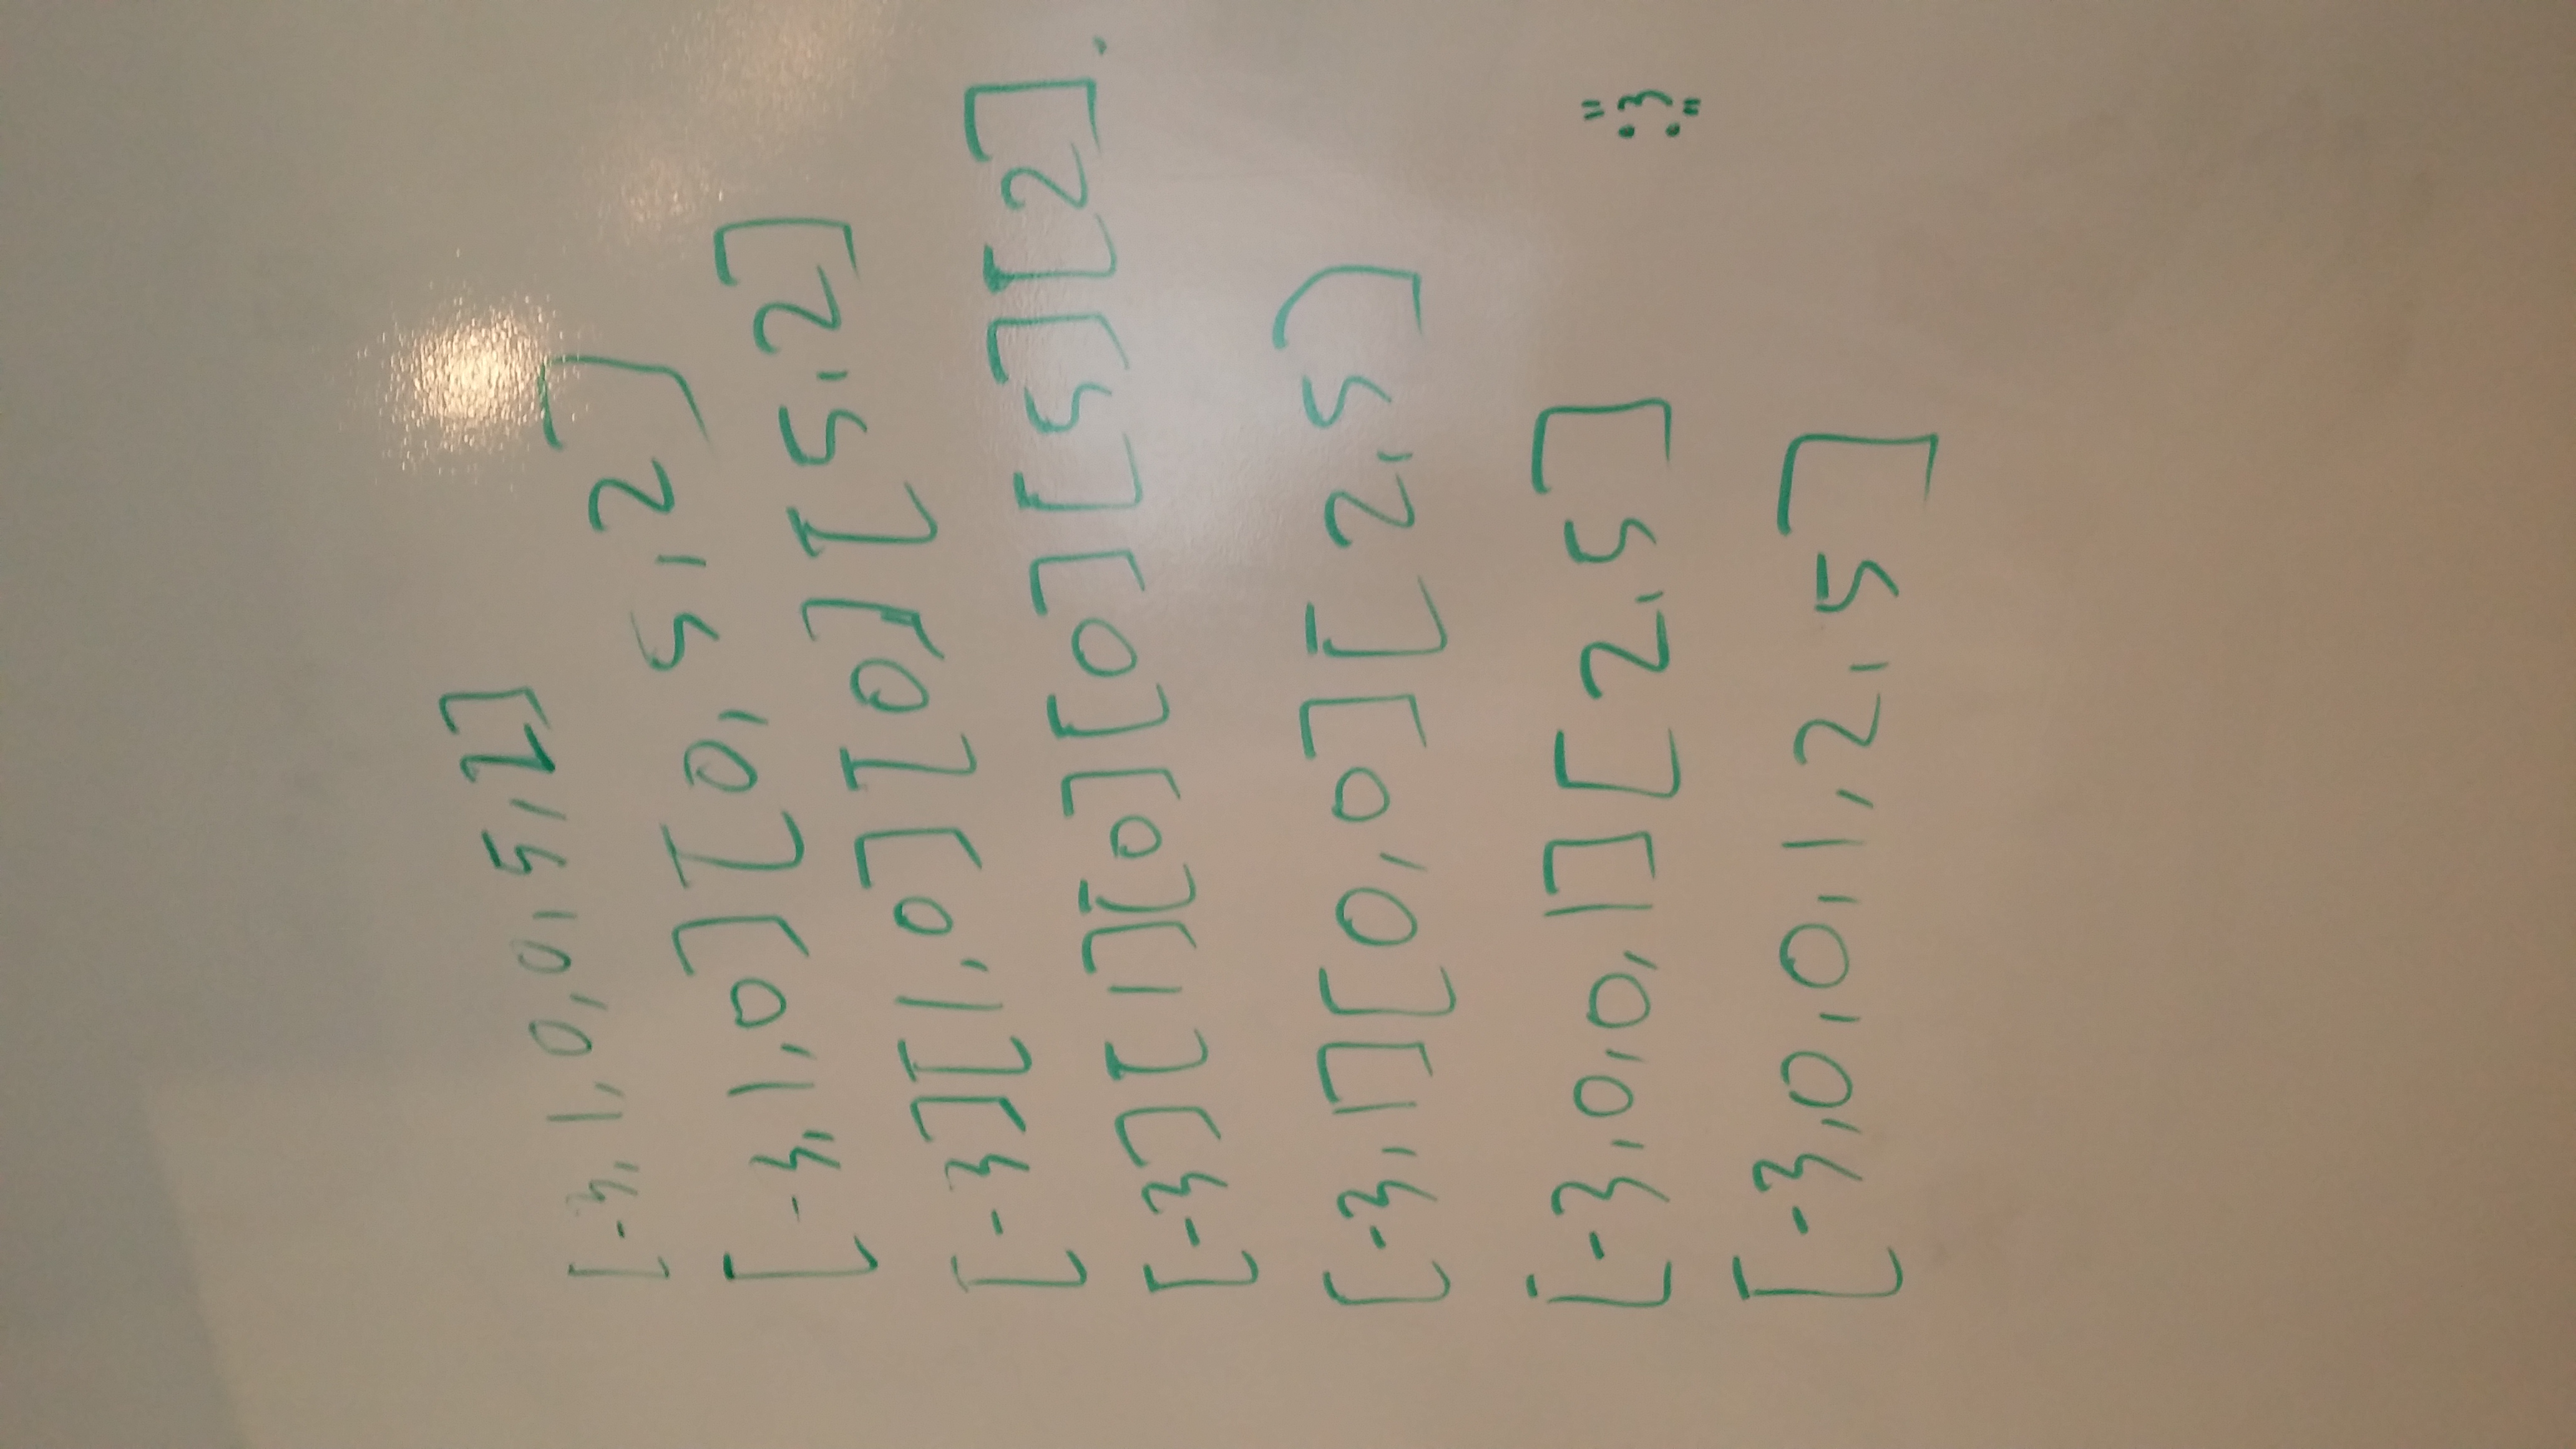 [-3,1,0,0,5,2]
[-3,1,0][0,5,2]
[-3][1,0][0][5,2]
[-3][1][0][0][5][2].
[-3,1][0,0][2,5]
[-3,0,0,1][2,5]
":3"
[-3,0,0,1,2,5]